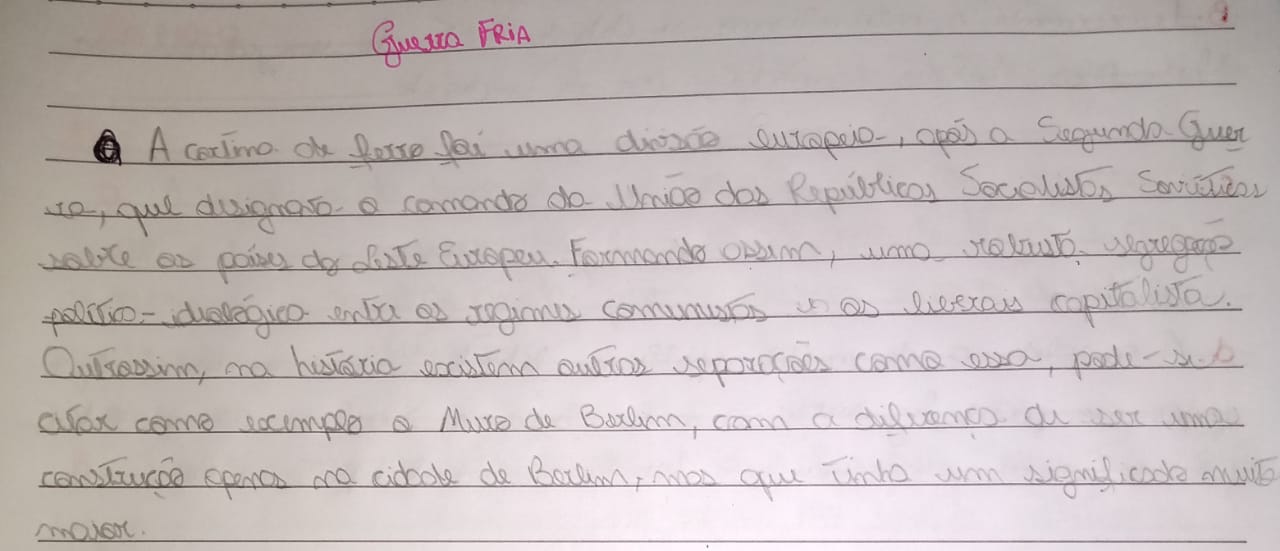 Guerra FRIA
A cortina de ferro foi uma divisão europeia, após a Segunda Guer
ra, que designava o comando da União das Repúblicas Socialistas Soviéticas
sobre os países do Leste Europeu. Formando assim, uma robusta segregação
político-ideológica entre os regimes comunistas e os liberais capitalista.
Outrossim, na história existem outras separações como essa, pode-se
citar como exemplo o Muro de Berlim, com a diferença de ser uma
construção apenas na cidade de Berlim, mas que tinha um significado muito
maior.